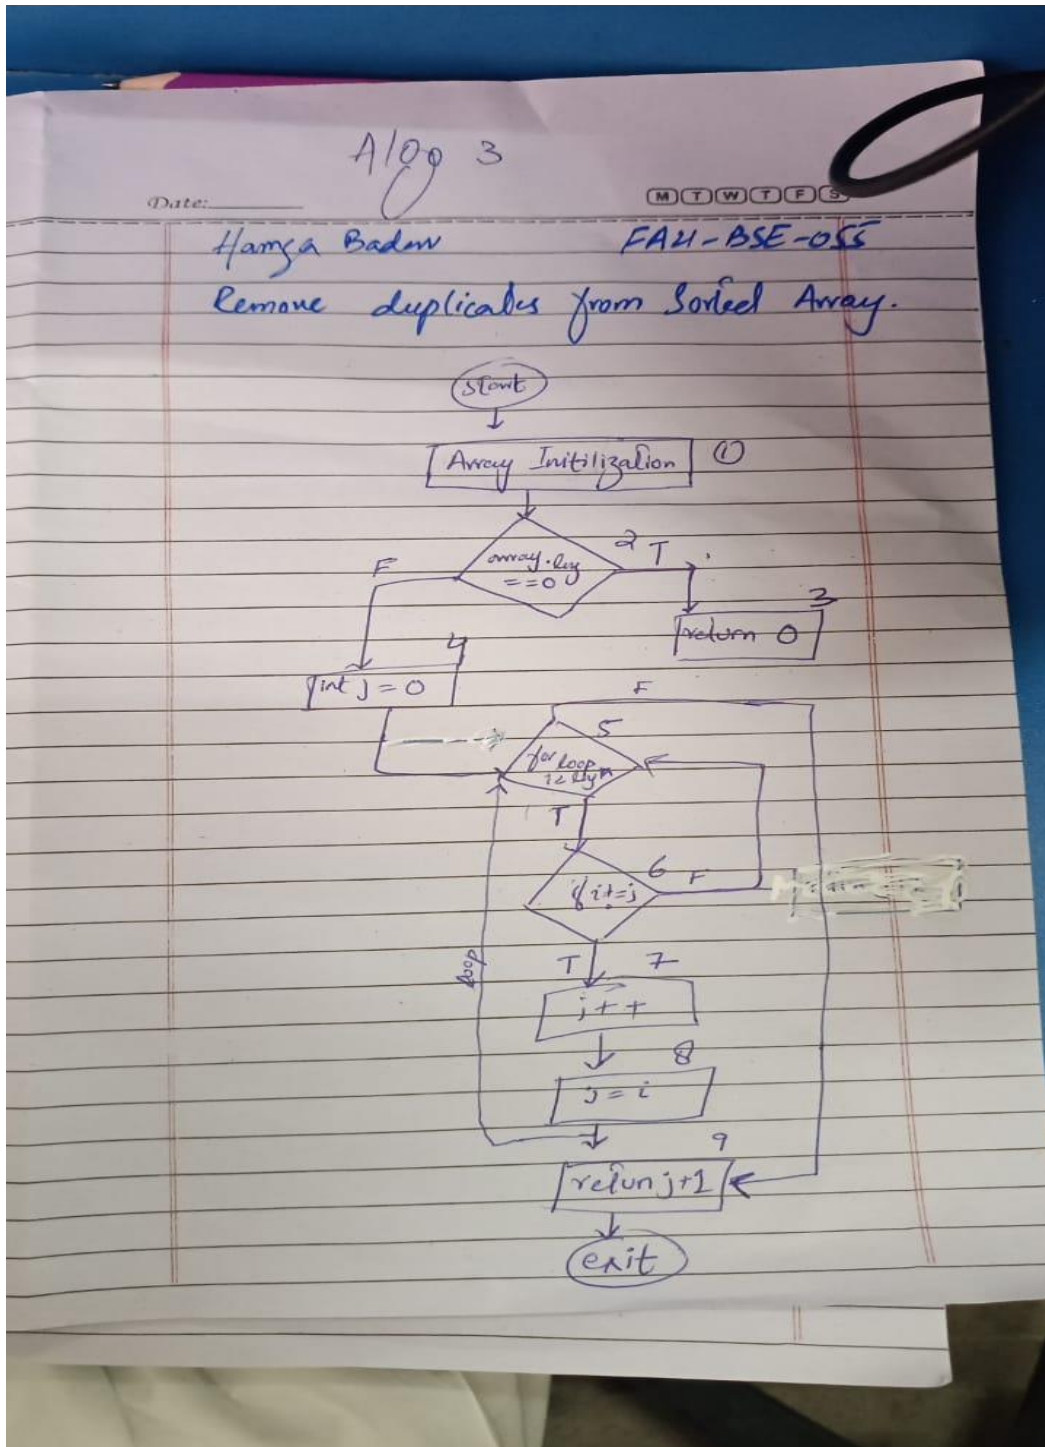 Algo 3
Date:
M T W T F S
Hamza Badar FA21-BSE-055
Remove duplicates from Sorted Array.
start
Array Initilization 1
array.leg
==0
2 T
F
return 0 3
int j = 0 4
F
for loop
i<leg
5
T
if i!=j 6 F
loop
T 7
j++
8
j = i
9
return j+1
exit